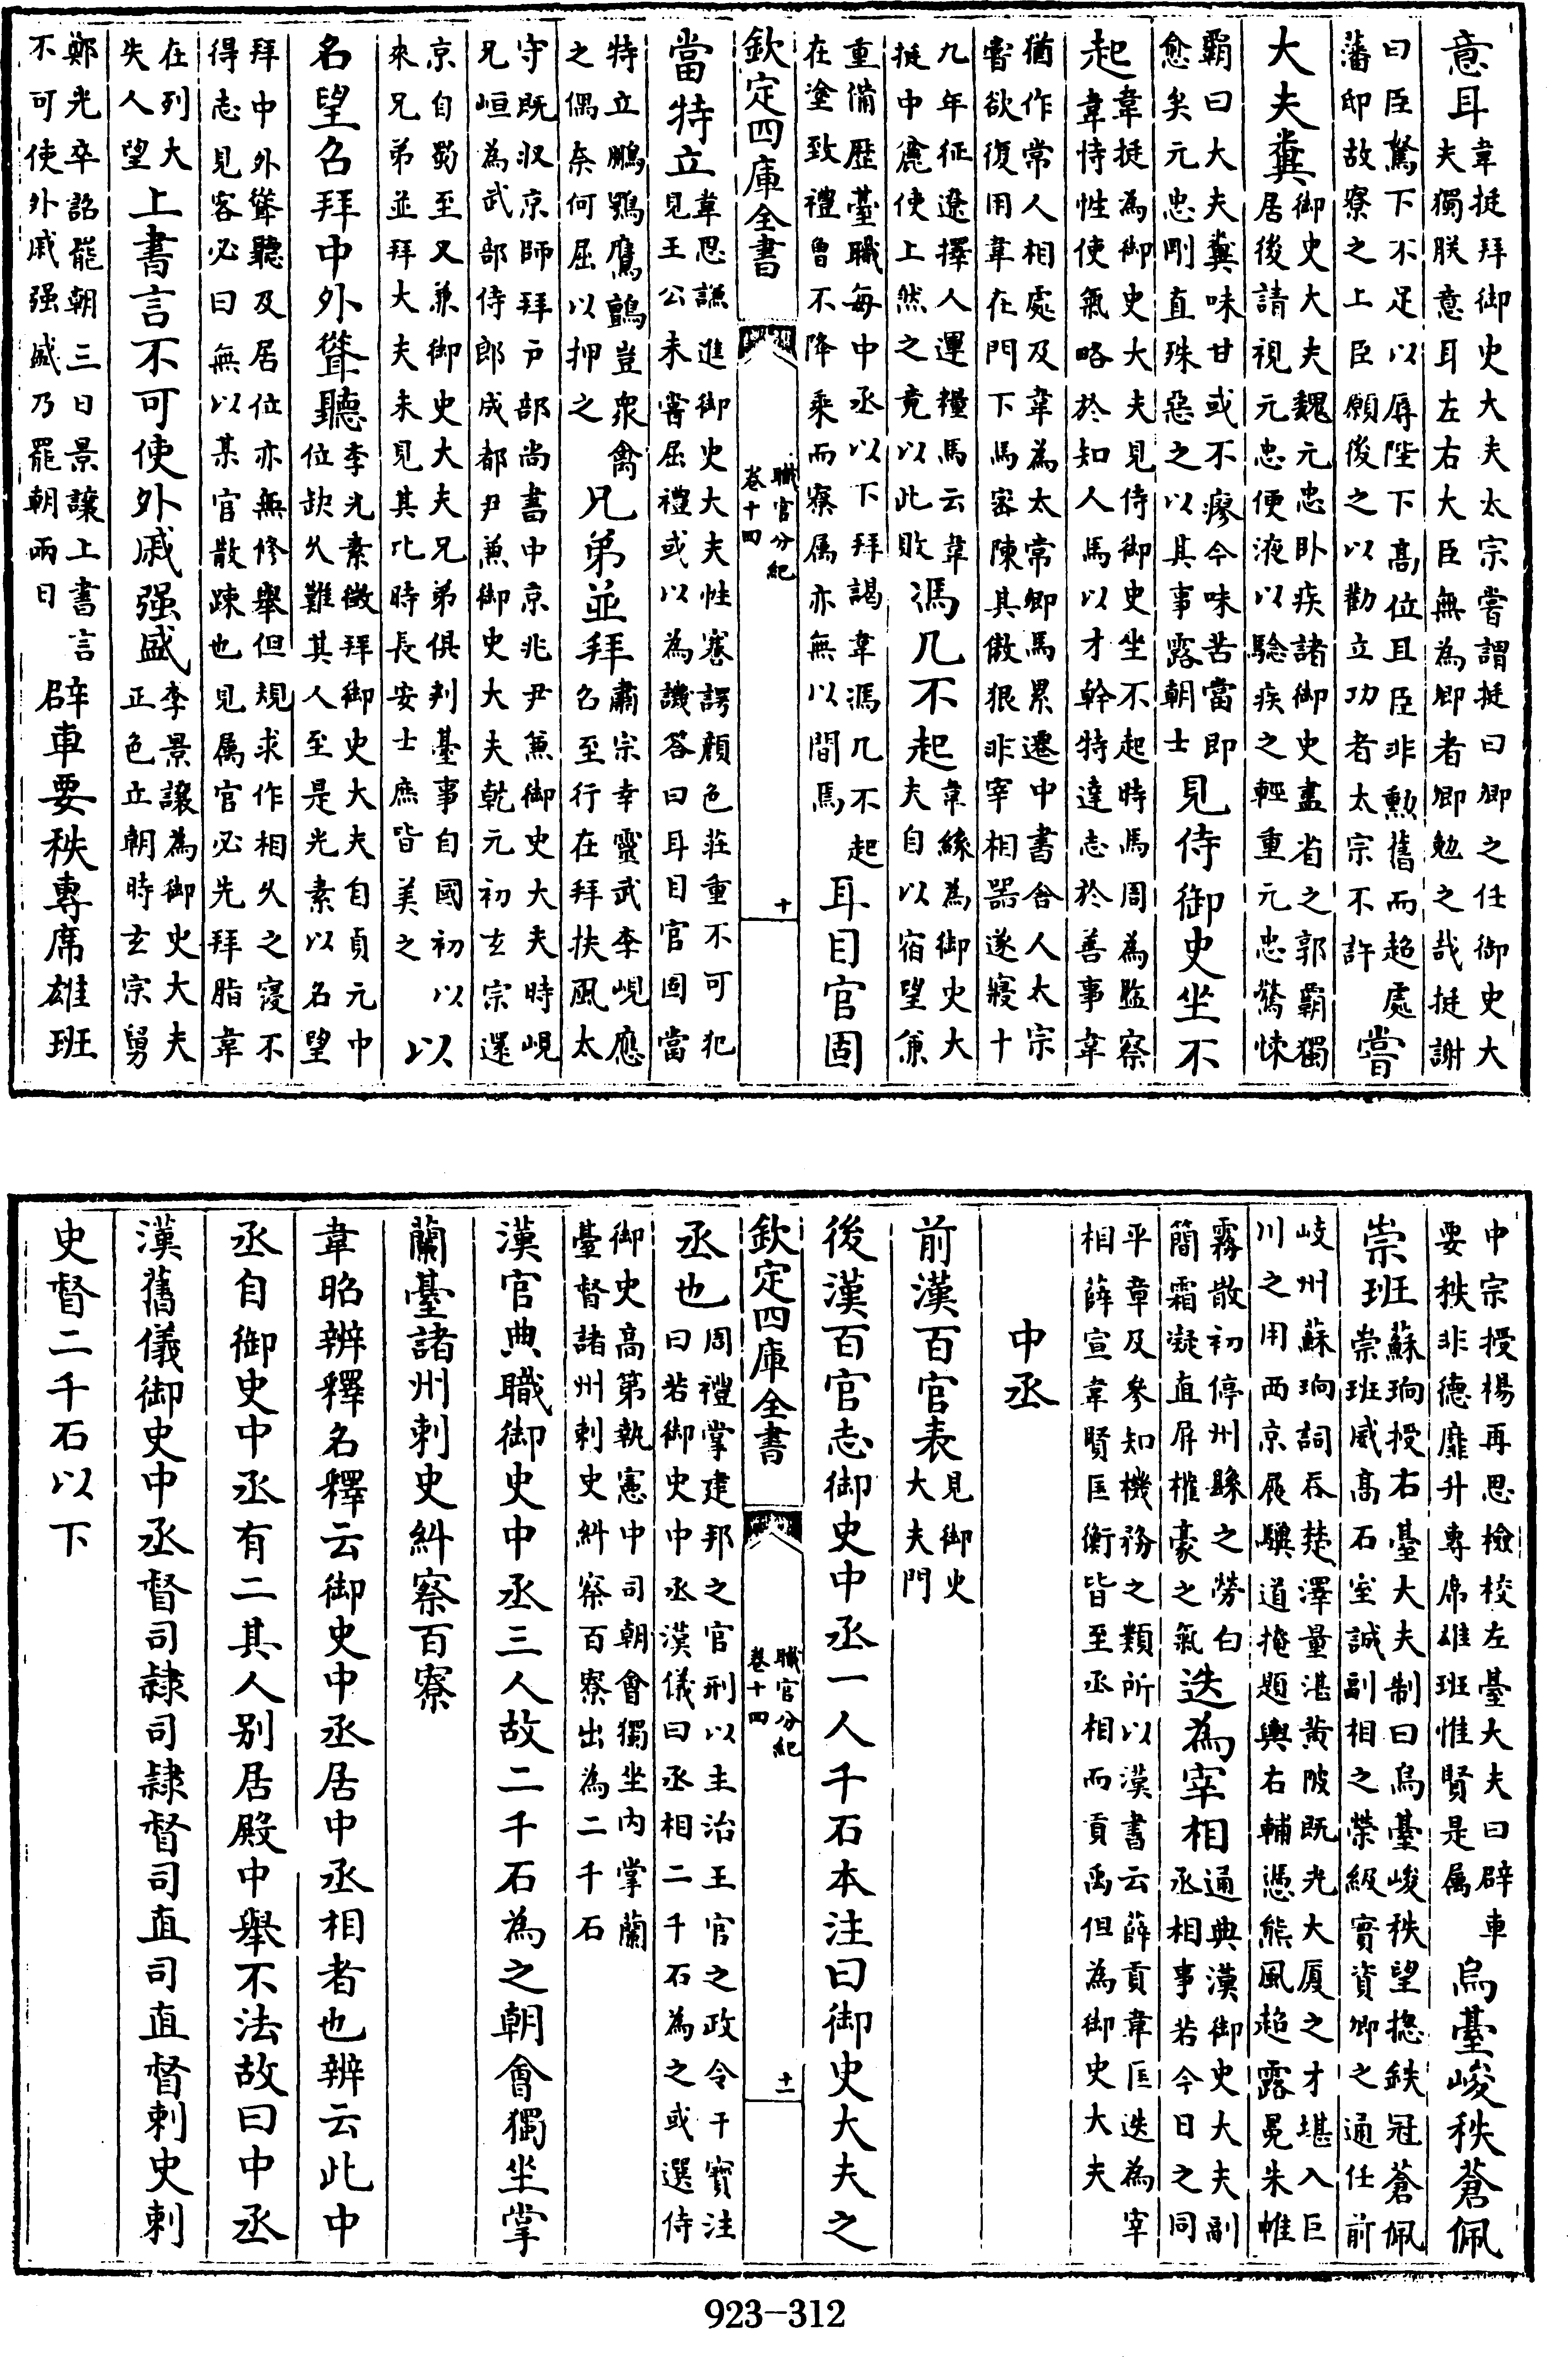 意耳韋挺拜御史大夫太宗嘗謂挺曰卿之任御史大
夫獨朕意耳左右大臣無為卿者卿勉之哉挺謝
曰臣駑下不足以辱陛下髙位且臣非勲舊而超處
藩邸故寮之上臣願後之以勸立功者太宗不許嘗
大夫糞御史大夫魏元忠卧疾諸御史盡省之郭霸獨
居後請視元忠便液以驗疾之輕重元忠驚悚
霸曰大夫糞味甘或不瘳今味苦當即
愈矣元忠剛直殊惡之以其事露朝士見侍御史坐不
起韋挺為御史大夫見侍御史坐不起時馬周為監察
韋恃性使氣略於知人馬以才幹特達志於善事韋
猶作常人相處及韋為太常卿馬累遷中書舍人太宗
嘗欲復用韋在門下馬宻陳其傲狠非宰相器遂寢十
九年征遼擇人運糧馬云韋
挺中麄使上然之竟以此敗馮几不起韋縧為御史大
夫自以宿望兼
重備歴臺職每中丞以下拜謁韋馮几不起
在塗致禮曾不降乘而寮属亦無以間焉耳目官固
欽定四庫全書
職官分紀
卷十四
十
當特立韋思謙進御史大夫性謇諤顔色莊重不可犯
見王公未嘗屈禮或以為譏答曰耳目官固當
特立鵰鶚鷹鸇豈衆禽
之偶奈何屈以狎之兄弟並拜肅宗幸靈武李峴應
召至行在拜扶風太
守既収京師拜户部尚書中京兆尹兼御史大夫時峴
兄峘為武部侍郎成都尹兼御史大夫乾元初玄宗還
京自蜀至又兼御史大夫兄弟俱判臺事自國初以
來兄弟並拜大夫未見其比時長安士庶皆美之以
名望召拜中外聳聽李光素徴拜御史大夫自貞元中
位缺久難其人至是光素以名望
拜中外聳聽及居位亦無修舉但規求作相久之寖不
得志見客必曰無以某官散踈也見属官必先拜脂韋
在列大
失人望上書言不可使外戚强盛李景讓為御史大夫
正色立朝時玄宗舅
鄭光卒詔罷朝三日景讓上書言
不可使外戚强盛乃罷朝兩日辟車要秩專席雄班
中宗授楊再思檢校左臺大夫曰辟車
要秩非德靡升專席雄班惟賢是属烏臺峻秩蒼佩
崇班蘇珦授右臺大夫制曰烏臺峻秩望揔鉄冠蒼佩
崇班威髙石室誠副相之榮級實資卿之通任前
岐州蘇珦詞吞楚澤量湛黄陂既光大厦之才堪入巨
川之用西京展驥道掩題輿右輔憑熊風超露冕朱帷
霧散初停州縣之勞白
簡霜凝直屏權豪之氣迭為宰相通典漢御史大夫副
丞相事若今日之同
平章及參知機務之類所以漢書云薛貢韋匡迭為宰
相薛宣韋賢匡衡皆至丞相而貢禹但為御史大夫
中丞
前漢百官表見御史
大夫門
後漢百官志御史中丞一人千石本注曰御史大夫之
欽定四庫全書
職官分紀
卷十四
十一
丞也周禮掌建邦之官刑以主治王官之政令干寳注
曰若御史中丞漢儀曰丞相二千石為之或選侍
御史髙第執憲中司朝會獨坐内掌蘭
臺督諸州刺史糾察百寮出為二千石
漢官典職御史中丞三人故二千石為之朝會獨坐掌
蘭臺諸州刺史糾察百寮
韋昭辨釋名釋云御史中丞居中丞相者也辨云此中
丞自御史中丞有二其人别居殿中舉不法故曰中丞
漢舊儀御史中丞督司隷司隷督司直司直督刺史刺
史督二千石以下
923-312